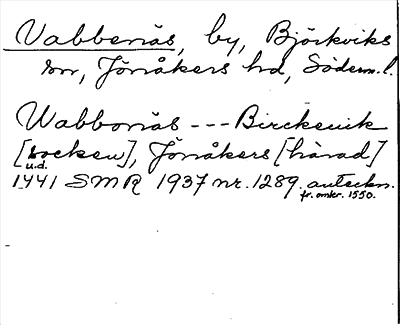 Vabbenäs, by, Björkviks
sn, Jönåkers hd, Söderm.l.
Wabbonäs --- Birckeuik
[socken], Jönåkers [härad]
u.d.
1441 SMR 1937 nr. 1289. anteckn.
fr. omkr. 1550.